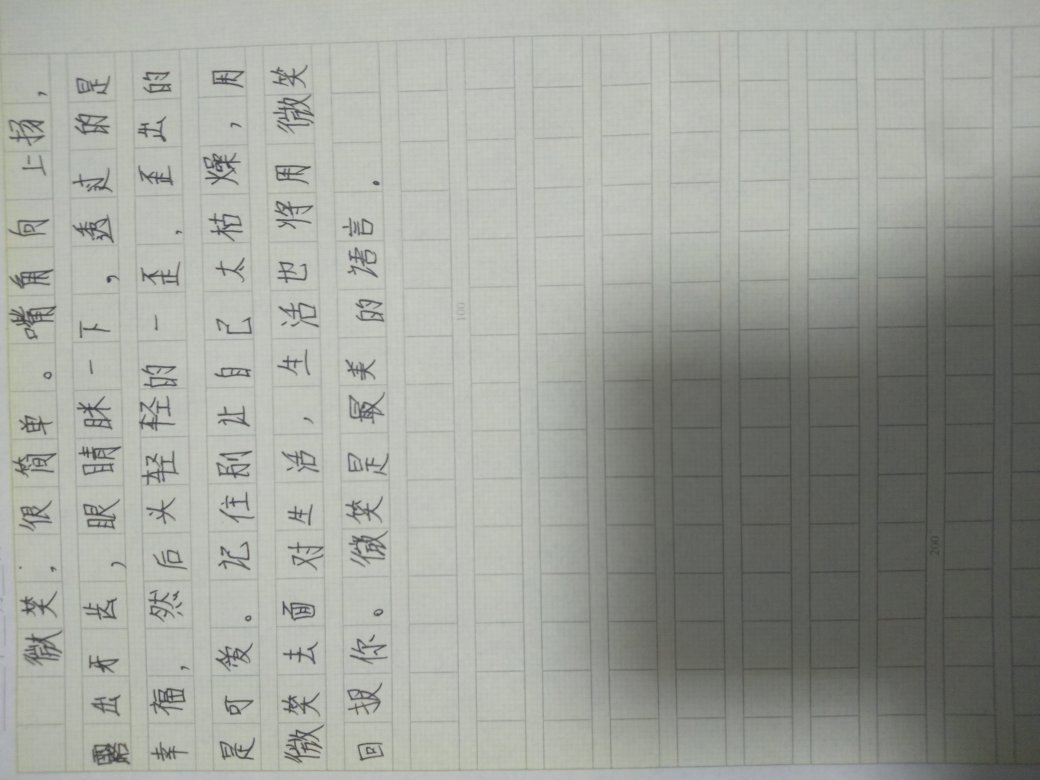 微笑，很简单。嘴角向上扬，
露出牙齿，眼睛眯一下，透过的是
幸福，然后头轻轻的一歪，歪出的
是可爱。记住别让自己太枯燥，用
微笑去面对生活，生活也将用微笑
回报你。微笑是最美的语言.
100
200